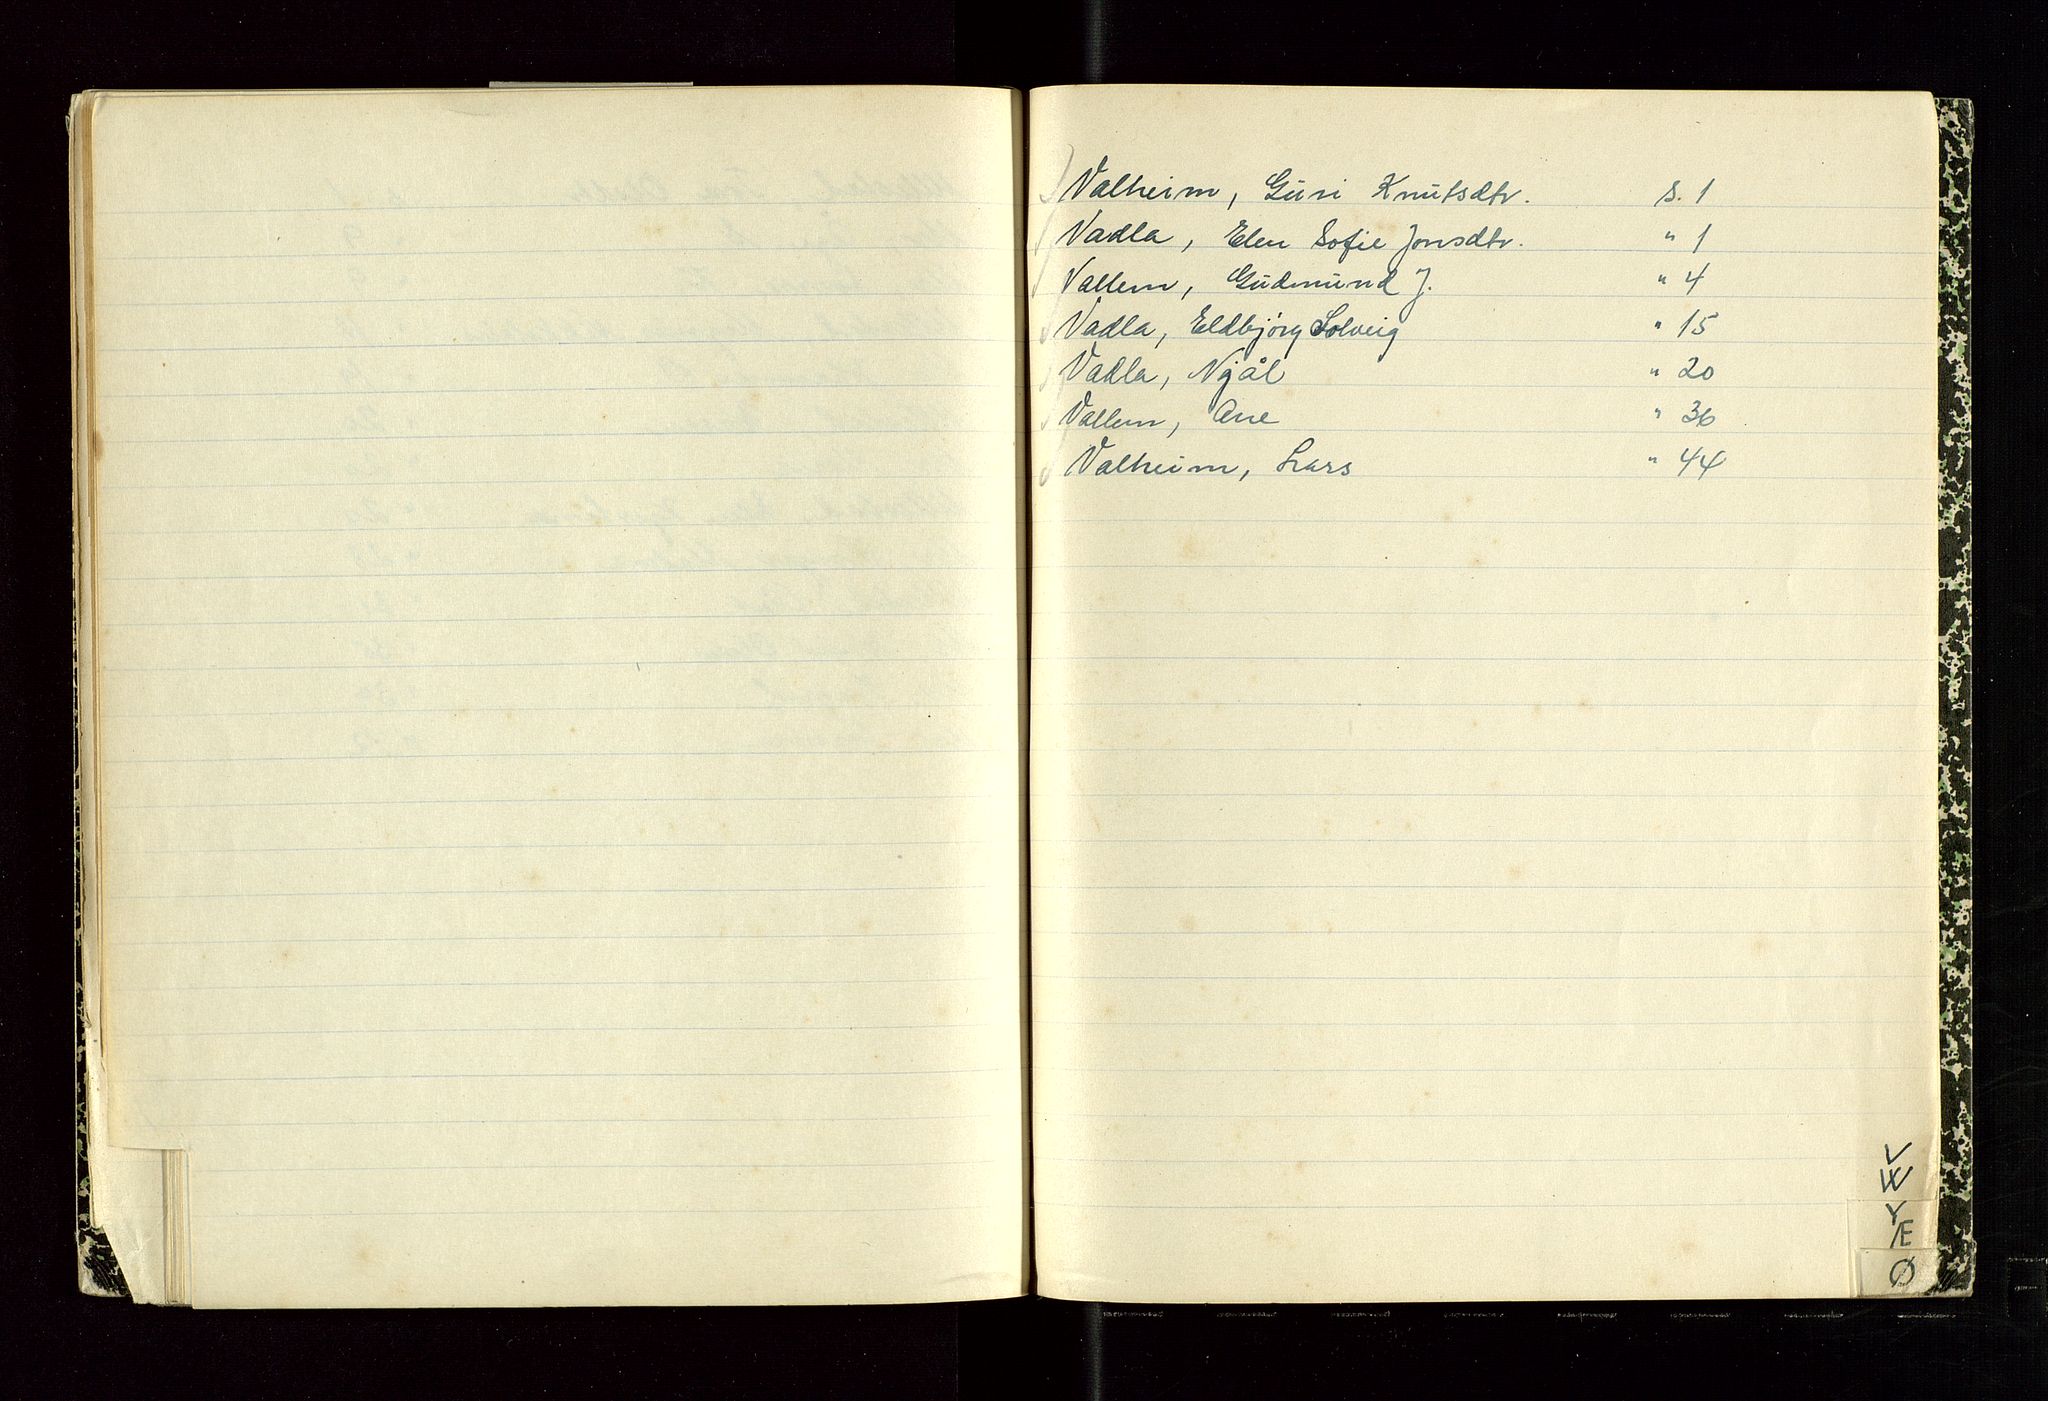 Valheim, Guri Knutsdtr. s. 1
Vadla, Elen Sofie Jonsdtr. " 1
Vallem, Gudmund J. " 4
Vadla, Eldbjörg Solveig " 15
Vadla, Njål " 20
Vallem, Ane " 36
Valheim, Lars " 44
V
W
Y
Æ
Ø